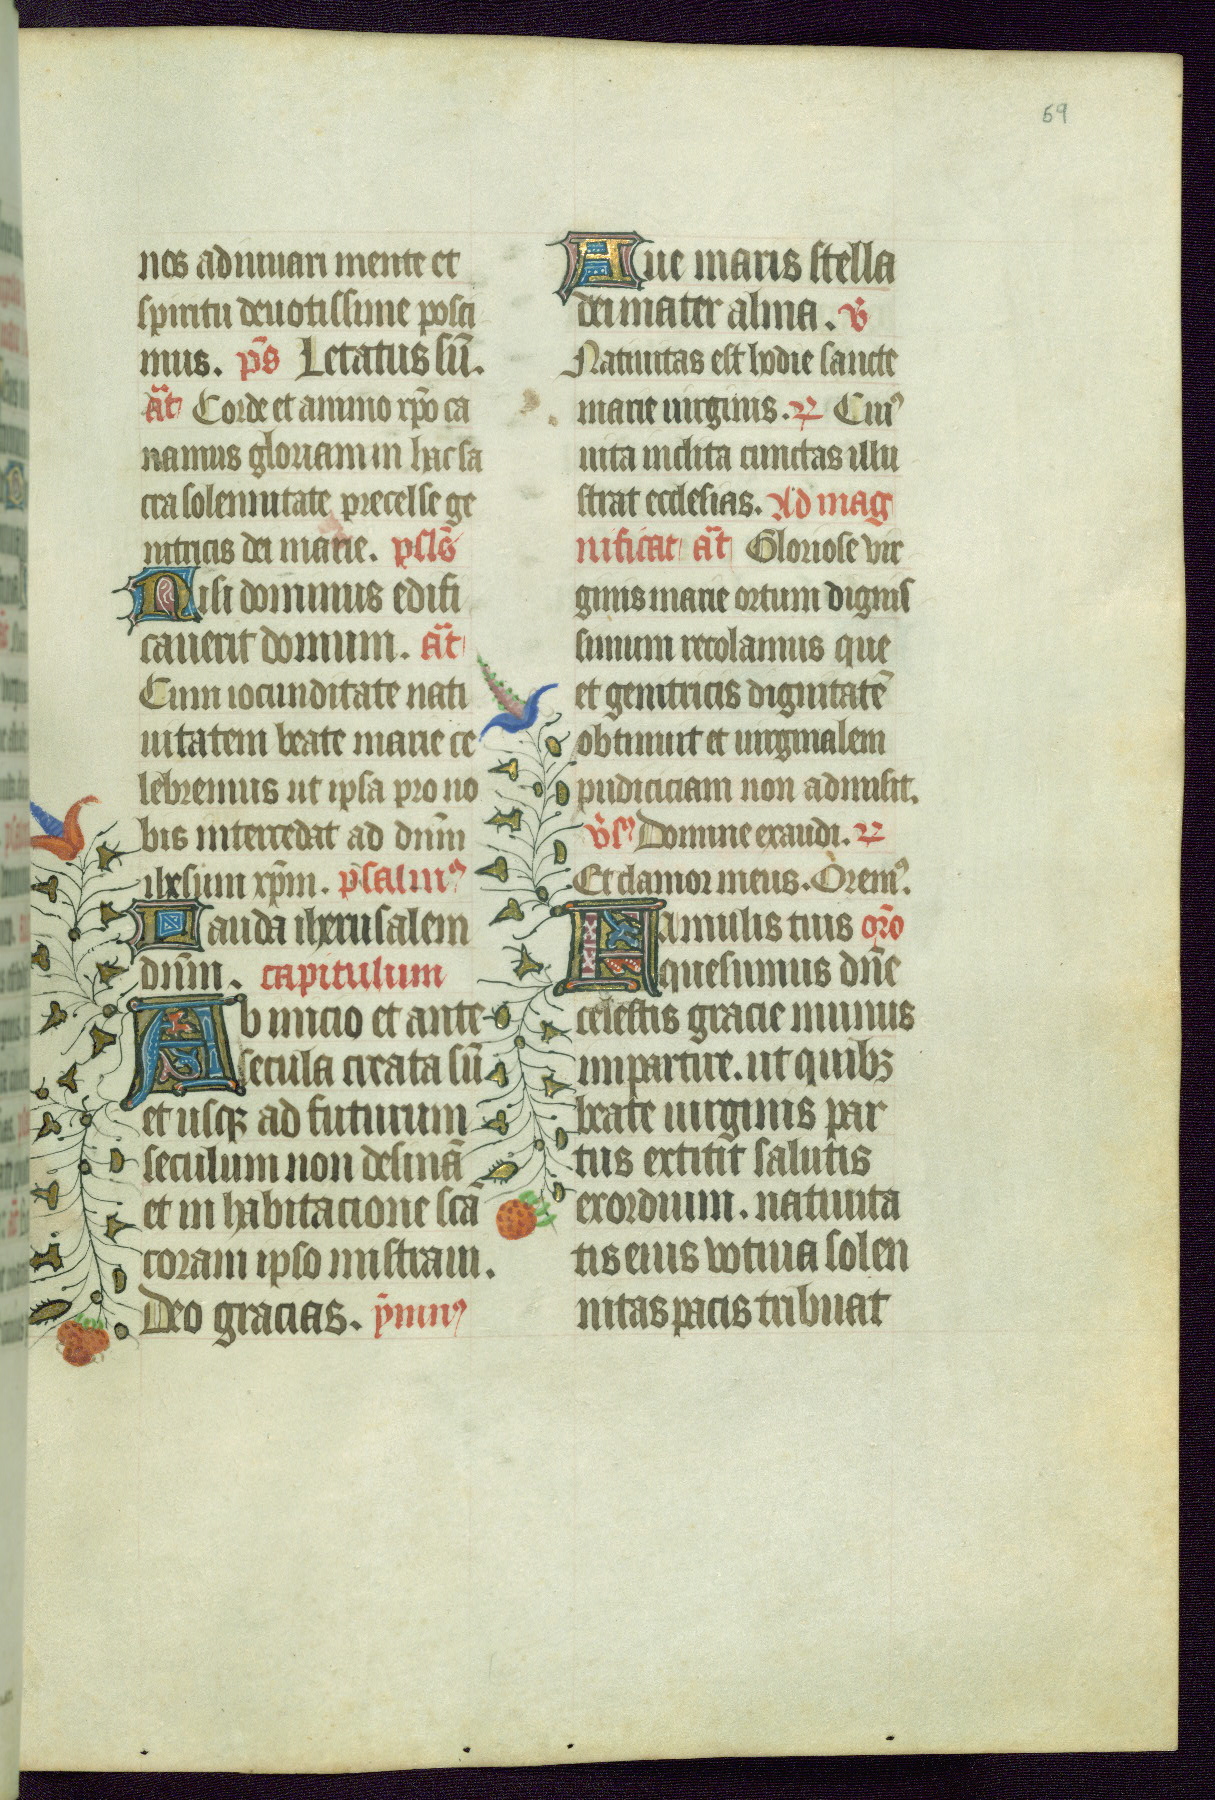 59
nos adiuuari mente et
spiritu deuotissime posci
mus. p̄s Letatus sū.
an̄t Corde et animo xp̄o ca
namus gloriam in hac sa
cra solennitate precelse ge
nitricis dei marie. psl̄s
Nisi dominus edifi
cauerit domum. an̄t
Cum iocunditate nati
uitatem beate marie ce
lebremus ut ipsa pro no
bis intercedat ad dn̄m
ihesum xp̄m. psalmꝰ
Lauda iherusalem
dn̄m. capitulum
Ab inicio et ante
secula creata sū
et usqꝫ ad futurum
seculum non desinā
et in habitacione scā
coram ipso mīstraui.
Deo gracias. ymnꝰ
Aue maris stella
dei mater alma. v̄
Natiuitas est hodie sancte
marie uirginis. ꝶ Cuiꝰ
uita inclita cunctas illu
strat ecclesias. Ad mag
nificat an̄t Gloriose vir
ginis marie ortum dignis
simum recolamus que
et genitricis dignitatē
obtinuit et uirginalem
pudiciciam non admisit.
v̄sꝰ Domine exaudi. ꝶ
Et clamor meus. Oremꝰ.
Famulis tuis or̄o
quesumus dn̄e
celestis gracie munus
impartire. ut quibꝫ
beate uirginis par
tus extitit salutis
exordium. natiuita
tis eius votiua solen
nitas pacis tribuat